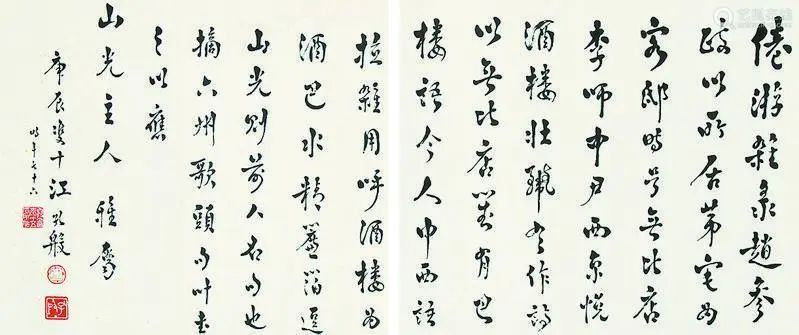 倦游雜录趙參
政以所居第宅為
客邸時号無比店
李師中尹西京悅
酒樓壯麗書作詩
以無比店對有巴
樓語今人中西語
拉雜用呼酒樓為
酒巴水精簾箔逗
山光則前人名句也
摘六州歌頭句叶書
之以應
山光主人 雅屬
庚辰雙十江孔殷
時年七十六